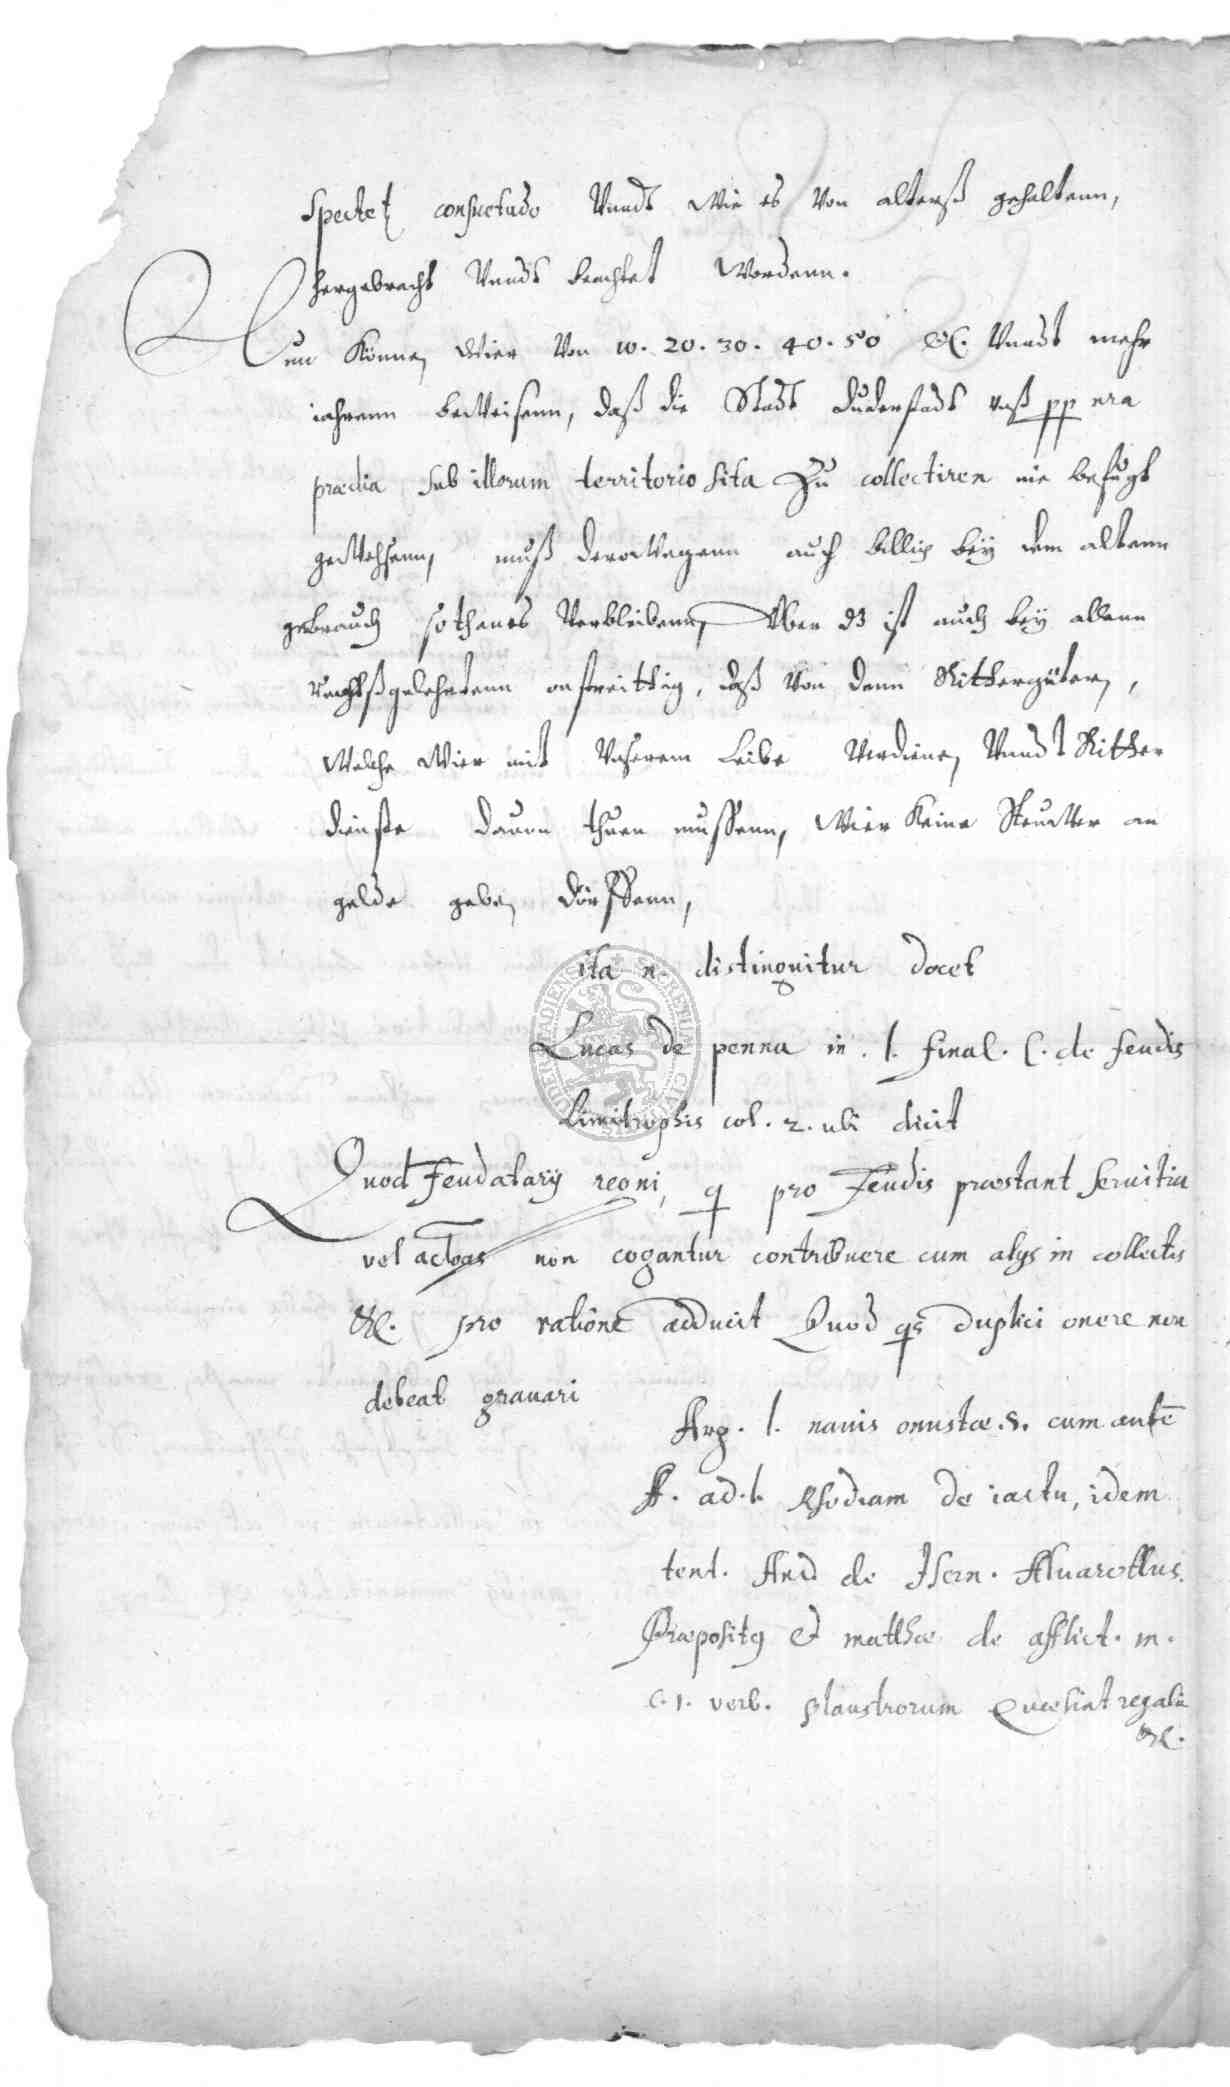 Spectet consuetudo Vnndt Wie es Von alterß gehaltenn,
hergebracht Vnndt beachtet Wordenn.
Nun Können Wier Von 10. 20. 30. 40. 50 &c. Vnndt mehr
iahrenn beWeisenn, daß die Stadt Duderstadt vnß pp nra
prædia sub illorum territorio sita Zu collectiren nie befugt
geWehsenn, muß deroWegenn auch billig beÿ dem altenn
gebrauch sothanes Verbleibenn, Vber dz ist auch beÿ allenn
rechtßgelehrtenn onstreittig, daß Von denn Rittergütern,
Welche Wier mit Vnserem Leibe Verdienen Vnndt Ritter
dienste dauon thuen mussenn, Wier Keine SteuWer an
gelde geben dörffenn,
ita n. distinguitur docet
Lucas de penna in . l. final. C. de feudis
Limitrophis col. 2. ubi dicit
Quod feudatarij regni, q pro Feudis præstant seruitia
vel non cogantur contribuere cum alijs in collectis
&c. pro ratione adducit Quod qs duplici onere non
debeat grauari
Arg. l. nauis onustæ. §. cum autē
ff. ad. l. Rhodiam de iactu, idem
tent. And de Isern. Aluarottus.
Præpositq & matthæ de afflict. in.
c. 1. verb. plaustrorum Quæ sint regalia
&c.
SECRETUM CIVIUM DUDERSTADIENSIS